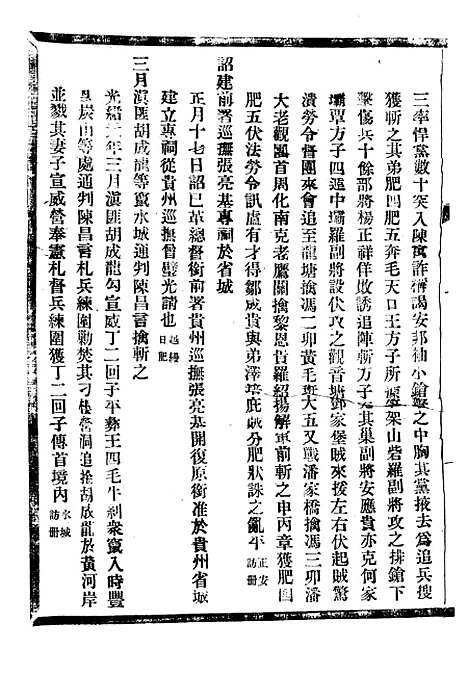 三率悍黨數十突入陳寓詐稱謁安邦袖小鎗擊之中胸其黨掖去爲追兵搜
獲斬之其弟肥四肥五奔毛天口王方子所據架山砦羅副將攻之排鎗下
擊傷兵十餘部將楊正祥佯敗誘追陣斬方子其巢副將安應貴亦克何家
壩覃方子四逕中壩羅副將設伏攻之觀音塘鄧家堡賊來援左右伏起賊驚
潰勞令督團來會追至龍塘擒馮二卯黃毛大五又戰潘家橋擒馮三卯潘
大老觀團首周化南克老鷹關擒黎恩貴羅紹揚解軍前斬之申丙章獲肥四
肥五伏法勞令訊慮有才得鄒成貴與弟澤培庇賊分肥狀誅之亂平 正安訪册
詔建前署巡撫張亮基專祠於省城
正月十七日詔已革總督銜前署貴州巡撫張亮基開復原銜准於貴州省城
建立專祠從貴州巡撫曾璧光請也 越縵日記
三月滇匪胡成龍等竄水城通判陳昌言擒斬之
光緒元年三月滇匪胡成龍勾宣威丁二回子平彝王四毛牛糾衆竄入時豐
炭山等處通判陳昌言札兵練圍勦焚其刁樓營洞追抬胡成龍於黃河岸
並戮其妻子宣威營奉憲札督兵練圍獲丁二回子傳首境內 水城訪册